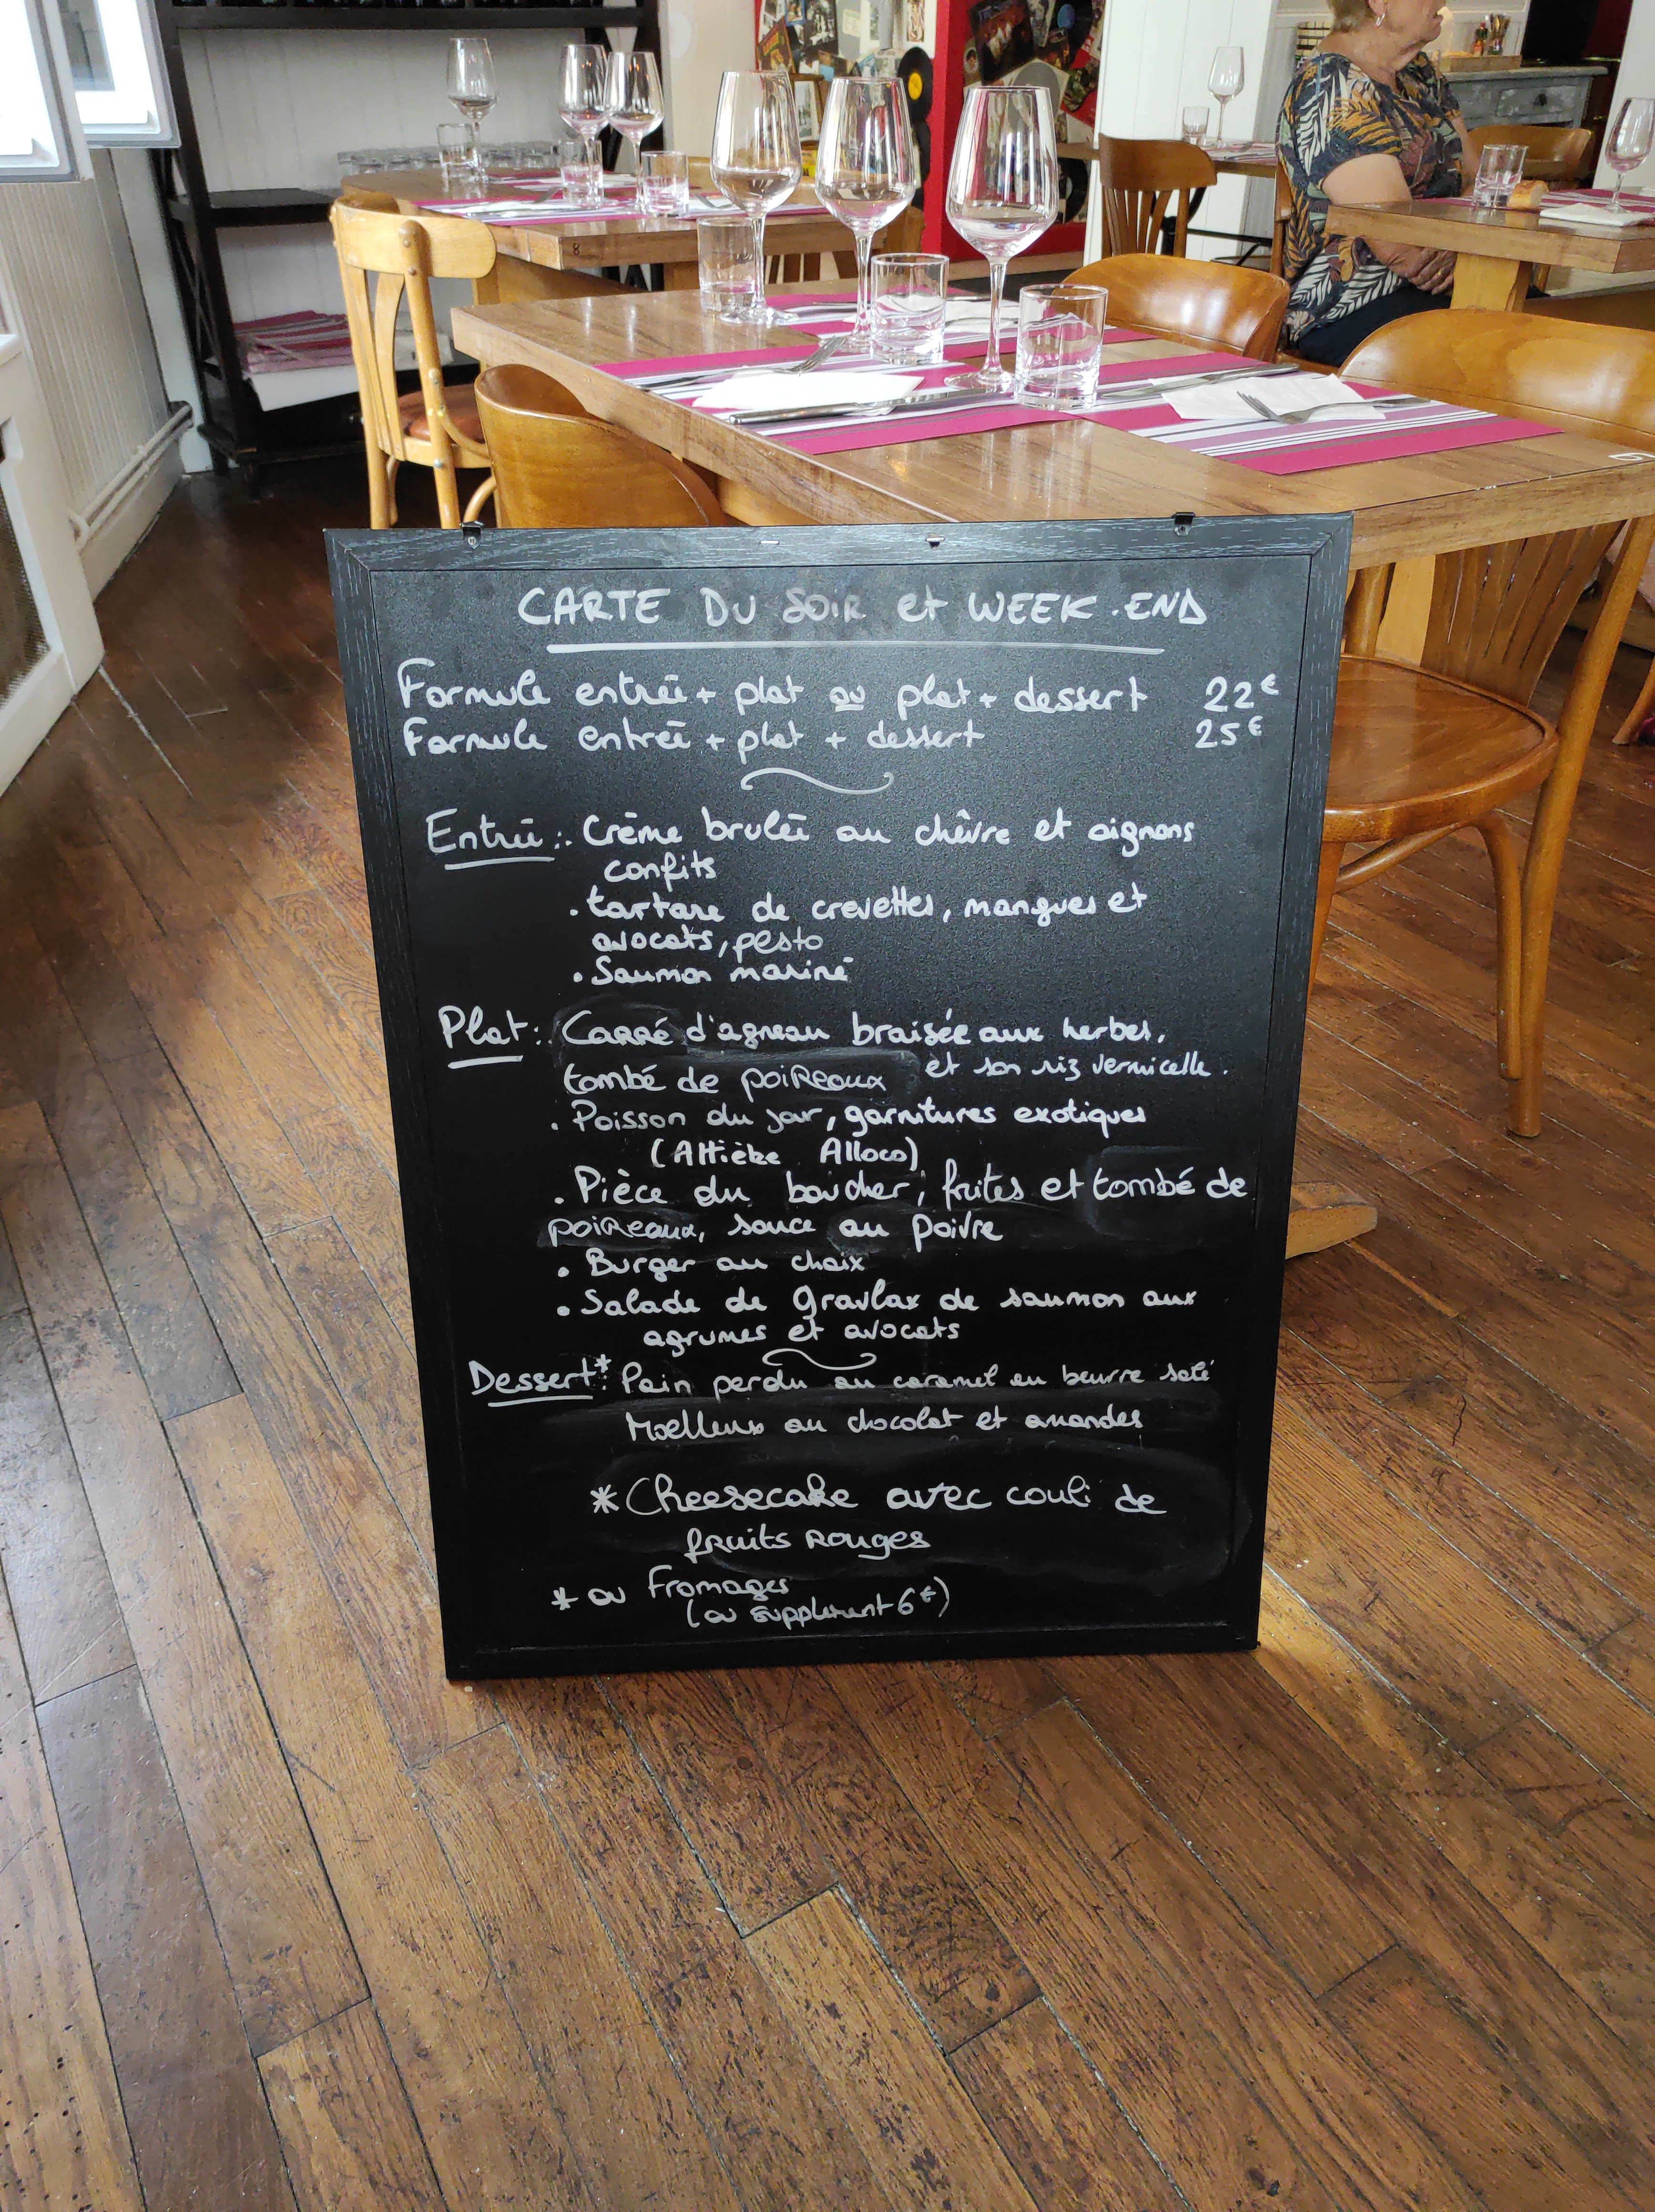 CARTE DU SOIR et WEEK-END
Formule entrée + plat ou plat + dessert 22€
Formule entrée + plat + dessert 25€
Entrée : . Crème brulée au chèvre et oignons
confits
. tartare de crevettes, mangues et
avocats, pesto
. Saumon mariné
Plat : . Carré d'agneau braisée aux herbes,
tombé de poireaux et son riz vermicelle.
. Poisson du jour, garnitures exotiques
(Attiéké Alloco)
. Pièce du boucher, frites et tombé de
poireaux, sauce au poivre
. Burger au choix
. Salade de gravlax de saumon aux
agrumes et avocats
Dessert* : Pain perdu au caramel au beurre salé
Moelleux au chocolat et amandes
* Cheesecake avec couli de
fruits rouges
* ou Fromages
(ou supplément 6€)
8